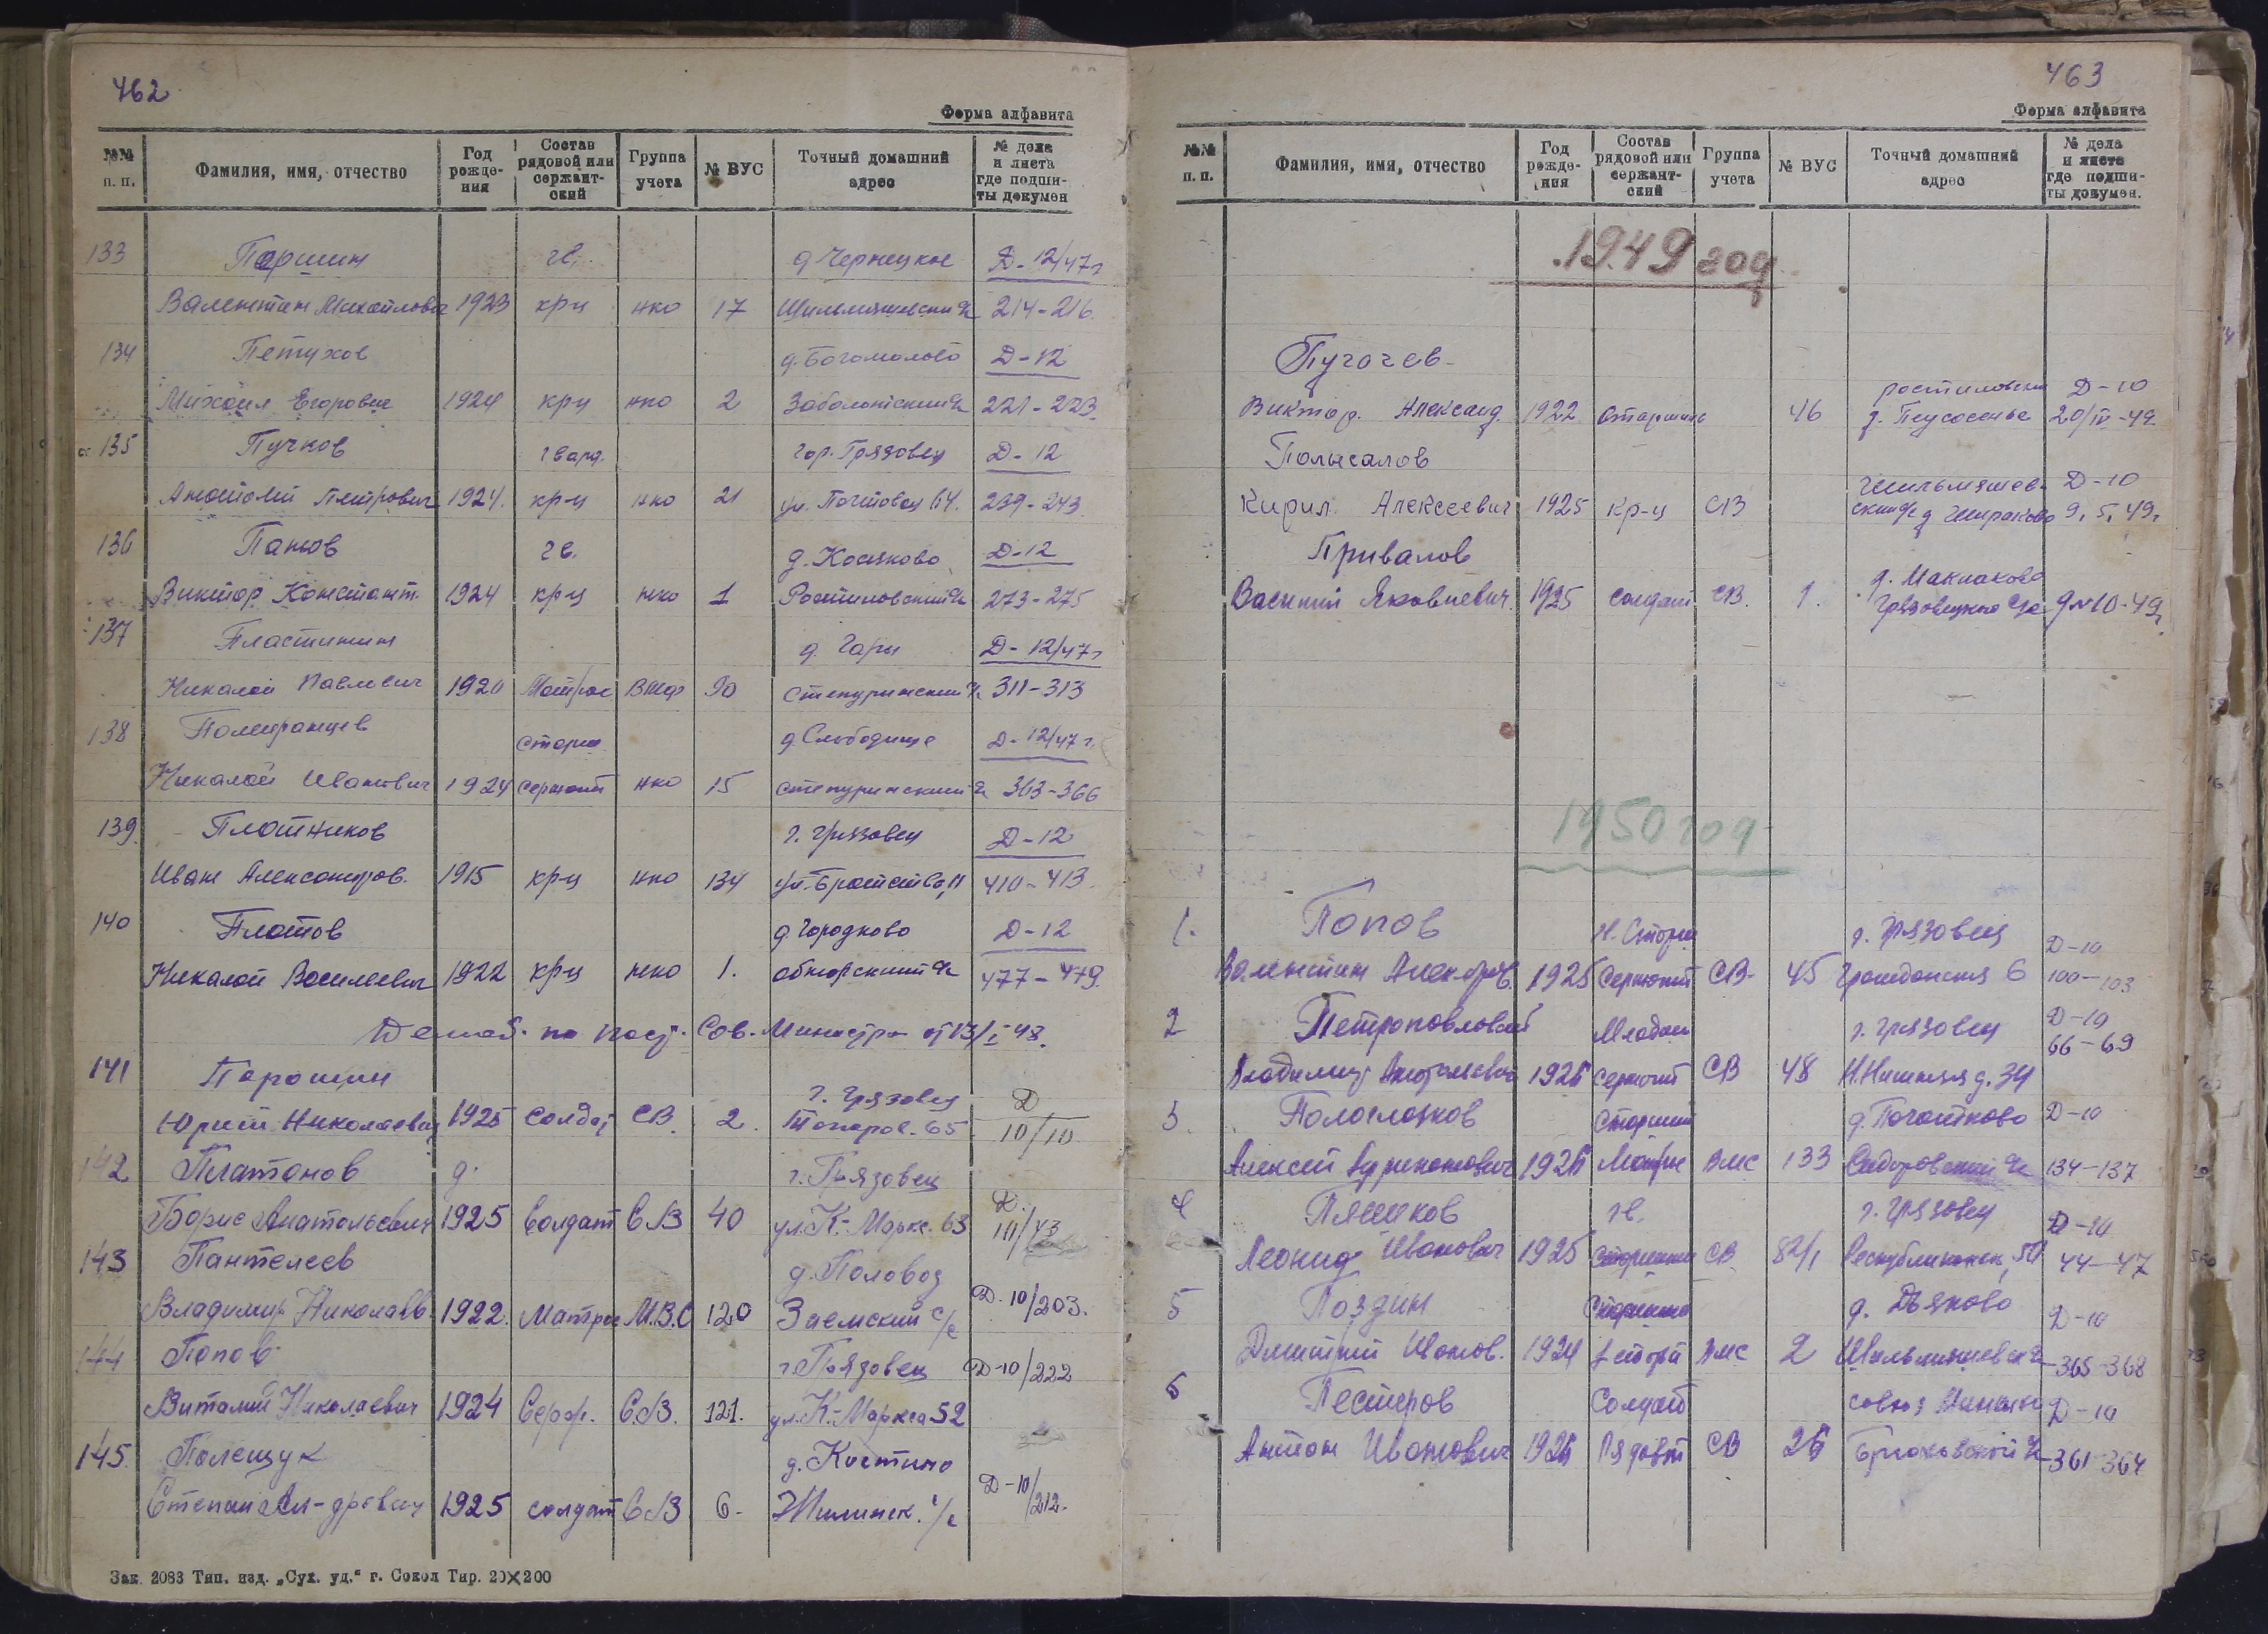 462
Форма алфавита
№№ п. п. Фамилия, имя, отчество Год рожде-ния Состав рядовой или сержант-ский Группа учета № ВУС Точный домашний адрес № дела и листа где подши-ты докумен
133 Паршин гв. д Чернецкое Д-12/47г
Валентин Михайлович 1923 кр-ц нко 17 214-216.
134 Петухов д. Богомолово Д-12
Михаил Егорович 1924 кр-ц нко 2 221-223
135 Пучков гвард. гор. Грязовец Д-12
Анатолий Петрович 1924. кр-ц нко 21 ул. Почтовая 64. 239-243
136 Панов гв. д. Косяково Д-12
Виктор Констант. 1924 кр-ц нко 1 273-275
137 Пластинин д. Гары Д-12/47г
Николай Павлович 1920 Матрос 90 311-313
138 Померанцев старш д Слободище Д-12/47г.
Николай Иванович 1924 сержант нко 15 363-366
139. Плотников г. Грязовец Д-12
Иван Александров. 1915 кр-ц нко 134 ул. Братства, 11 410-413
140 Платов д. Городково Д-12
Николай Васильевич 1922 кр-ц нко 1. 477-479.
Демоб. по пост. Сов. Министра от 13/I-48.
141 Парошин г. Грязовец Д
Юрий Николаевич 1925 солдат СВ. 2. 65 10/10
142 Платонов г. Грязовец Д.
Борис Анатольевич 1925 Солдат СВ 40 ул. К-Маркс. 63
143 Пантелеев д. Половоз Д.-10/203.
Владимир Николаев. 1922. Матрос М.В.С 120 Заемский с/с
144 Попов г. Грязовец Д-10/222
Виталий Николаевич 1924 С.В. 121. ул. К-Маркса 52
145. Полещук д. Костино Д-10/212.
Степан Ал-дрович 1925 солдат СВ 6- Жилинск. с/с
Зак. 2083 Тип. изд. „Сух. уд.“ г. Сокол Тир. 20×200
463
Форма алфавита
№№ п. п. Фамилия, имя, отчество Год рожде-ния Состав рядовой или сержант-ский Группа учета № ВУС Точный домашний адрес № дела и листа где подши-ты докумен.
1949 год
Пугачев
Виктор. Александ. 1922 старшина 46 20/IV-49. Д-10
Полысалов
Кирил. Алексеевич 1925 кр-ц СВ Д-10 9. 5. 49г
Привалов
Василий Яковлевич. 1925 солдат СВ. 1. д. Маклаково
1950 год
1. Попов г. Грязовец Д-10
Валентин 1925 Сержант СВ- 45 Гражданская 6 100-103
2 Петропавловский Младш г. Грязовец Д-10 66-69
Владимир Анатольевич сержант СВ 48 д. 34
3. Пологлазков Старший Д-10
Алексей Матрос ВМС 133 Сидоровский 134-137
4 Плешков гв. г. Грязовец Д-10
Леонид Иванович 1925 Старшина СВ 82/1 44-47
5 Поздин Старшина д. Дьяково Д-10
Дмитрий Иванов. 1924 ВМС 2 365-368
6 Пестеров Солдат Д-10
Антон Иванович Рядовой СВ 361-364